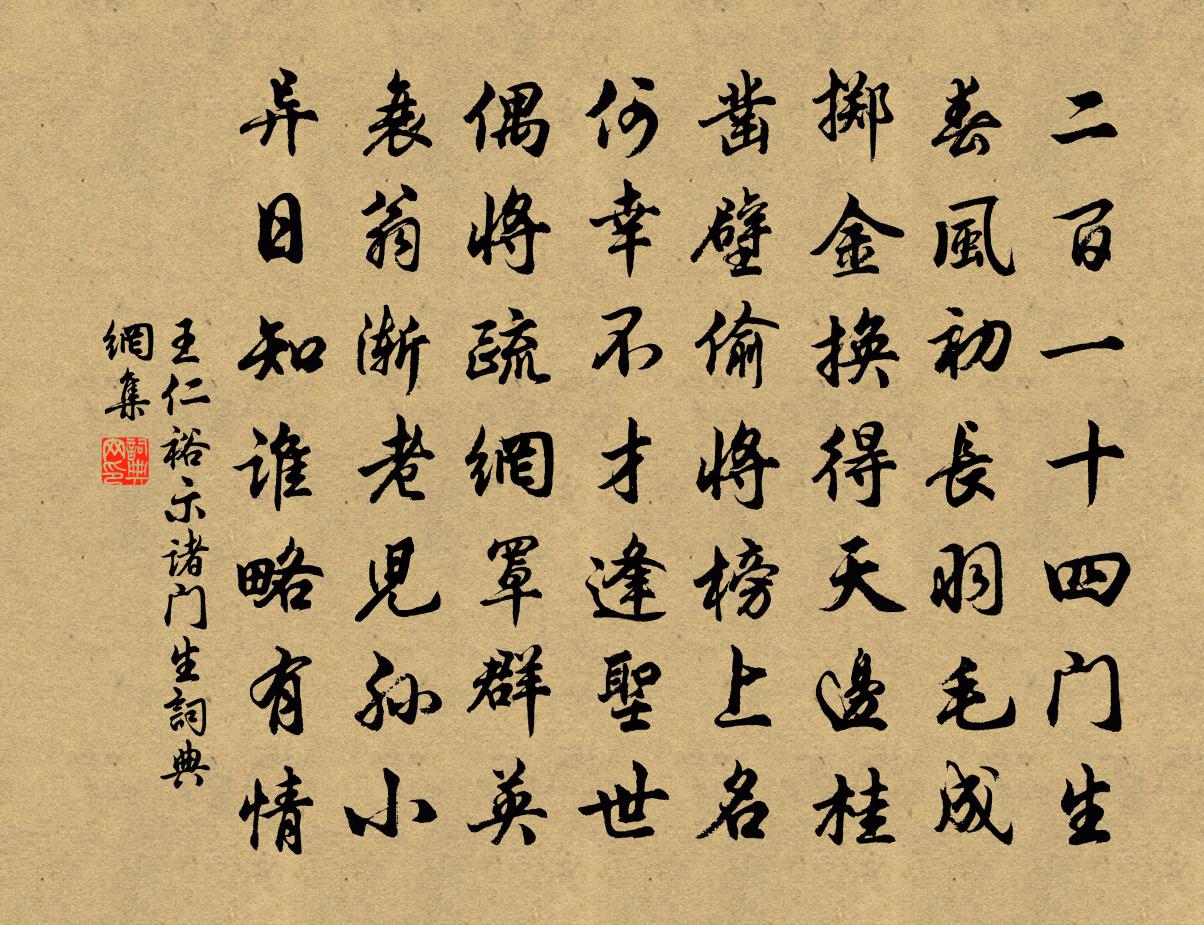 二百一十四门生
春風初長羽毛成
掷金換得天邊桂
凿壁偷將榜上名
何幸不才逢聖世
偶將疏網罩群英
衰翁漸老兒孫小
异日知誰略有情
王仁裕示诸门生詞典
網集
詞典
网印